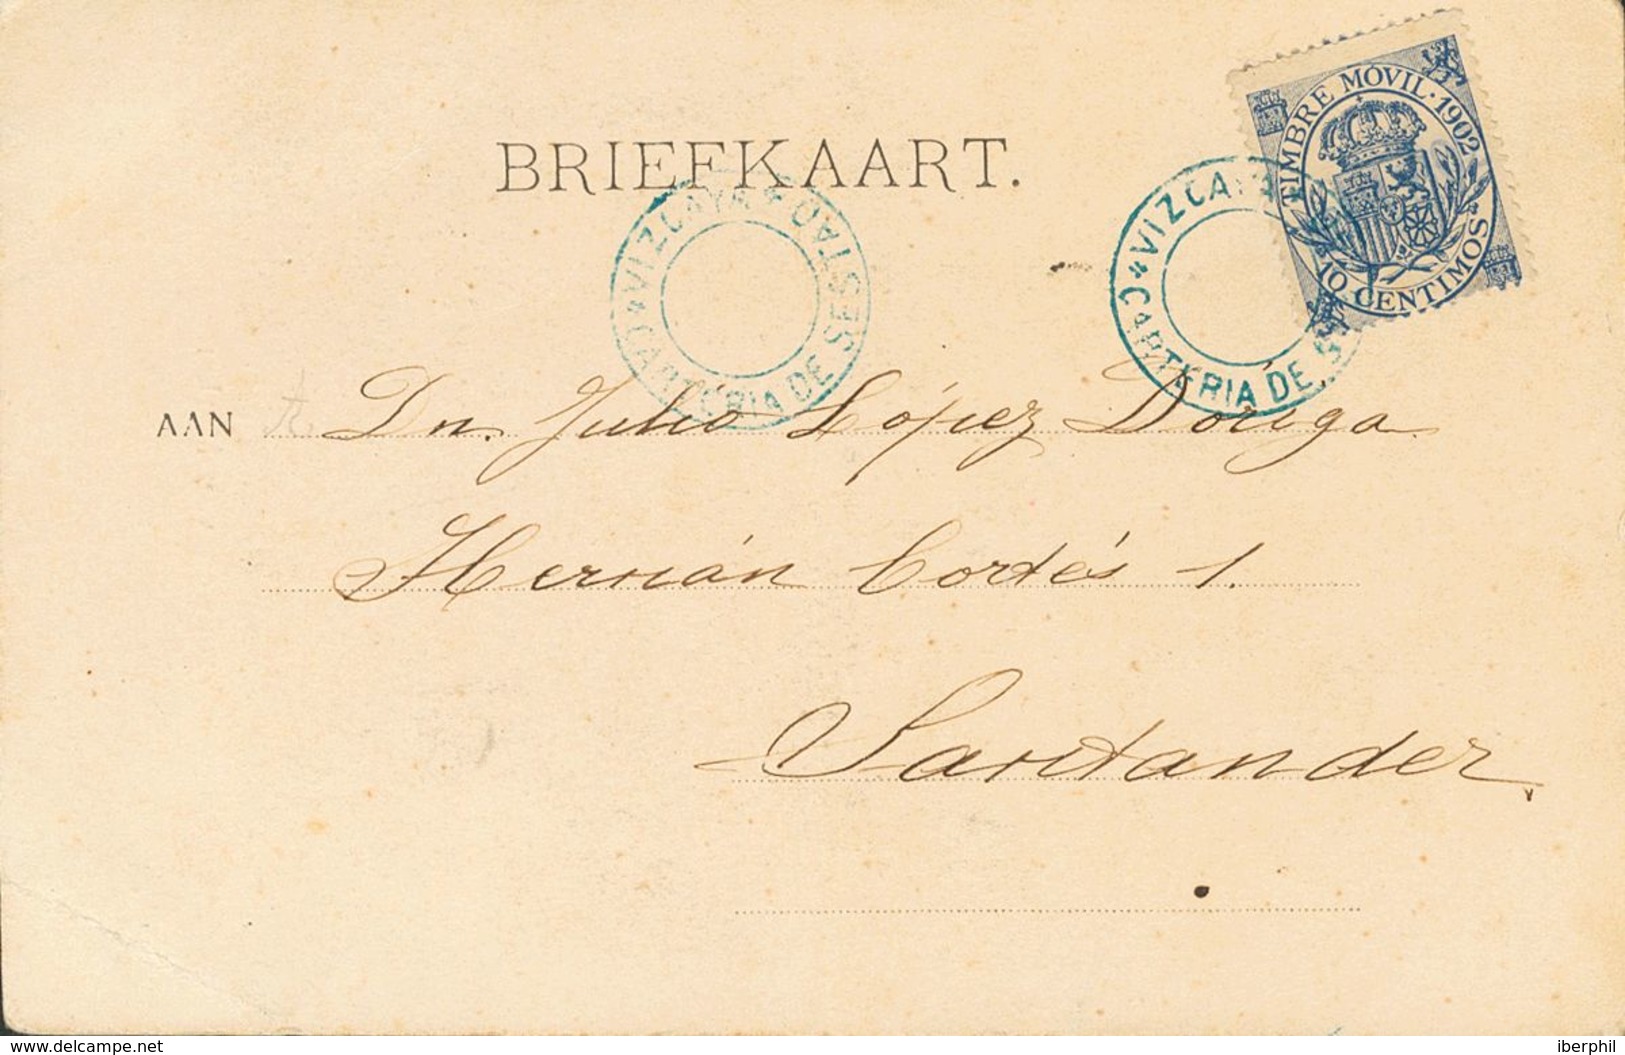 BRIEFKAART.
TIMBRE MÓVIL · 1902
10 CENTIMOS
* VIZCAYA * CARTERIA DE SESTAO
* VIZCAYA CARTERIA DE S
AAN Dn. Julio López Dóriga
Hernán Cortés 1.
Santander
www.delcampe.net
iberphil